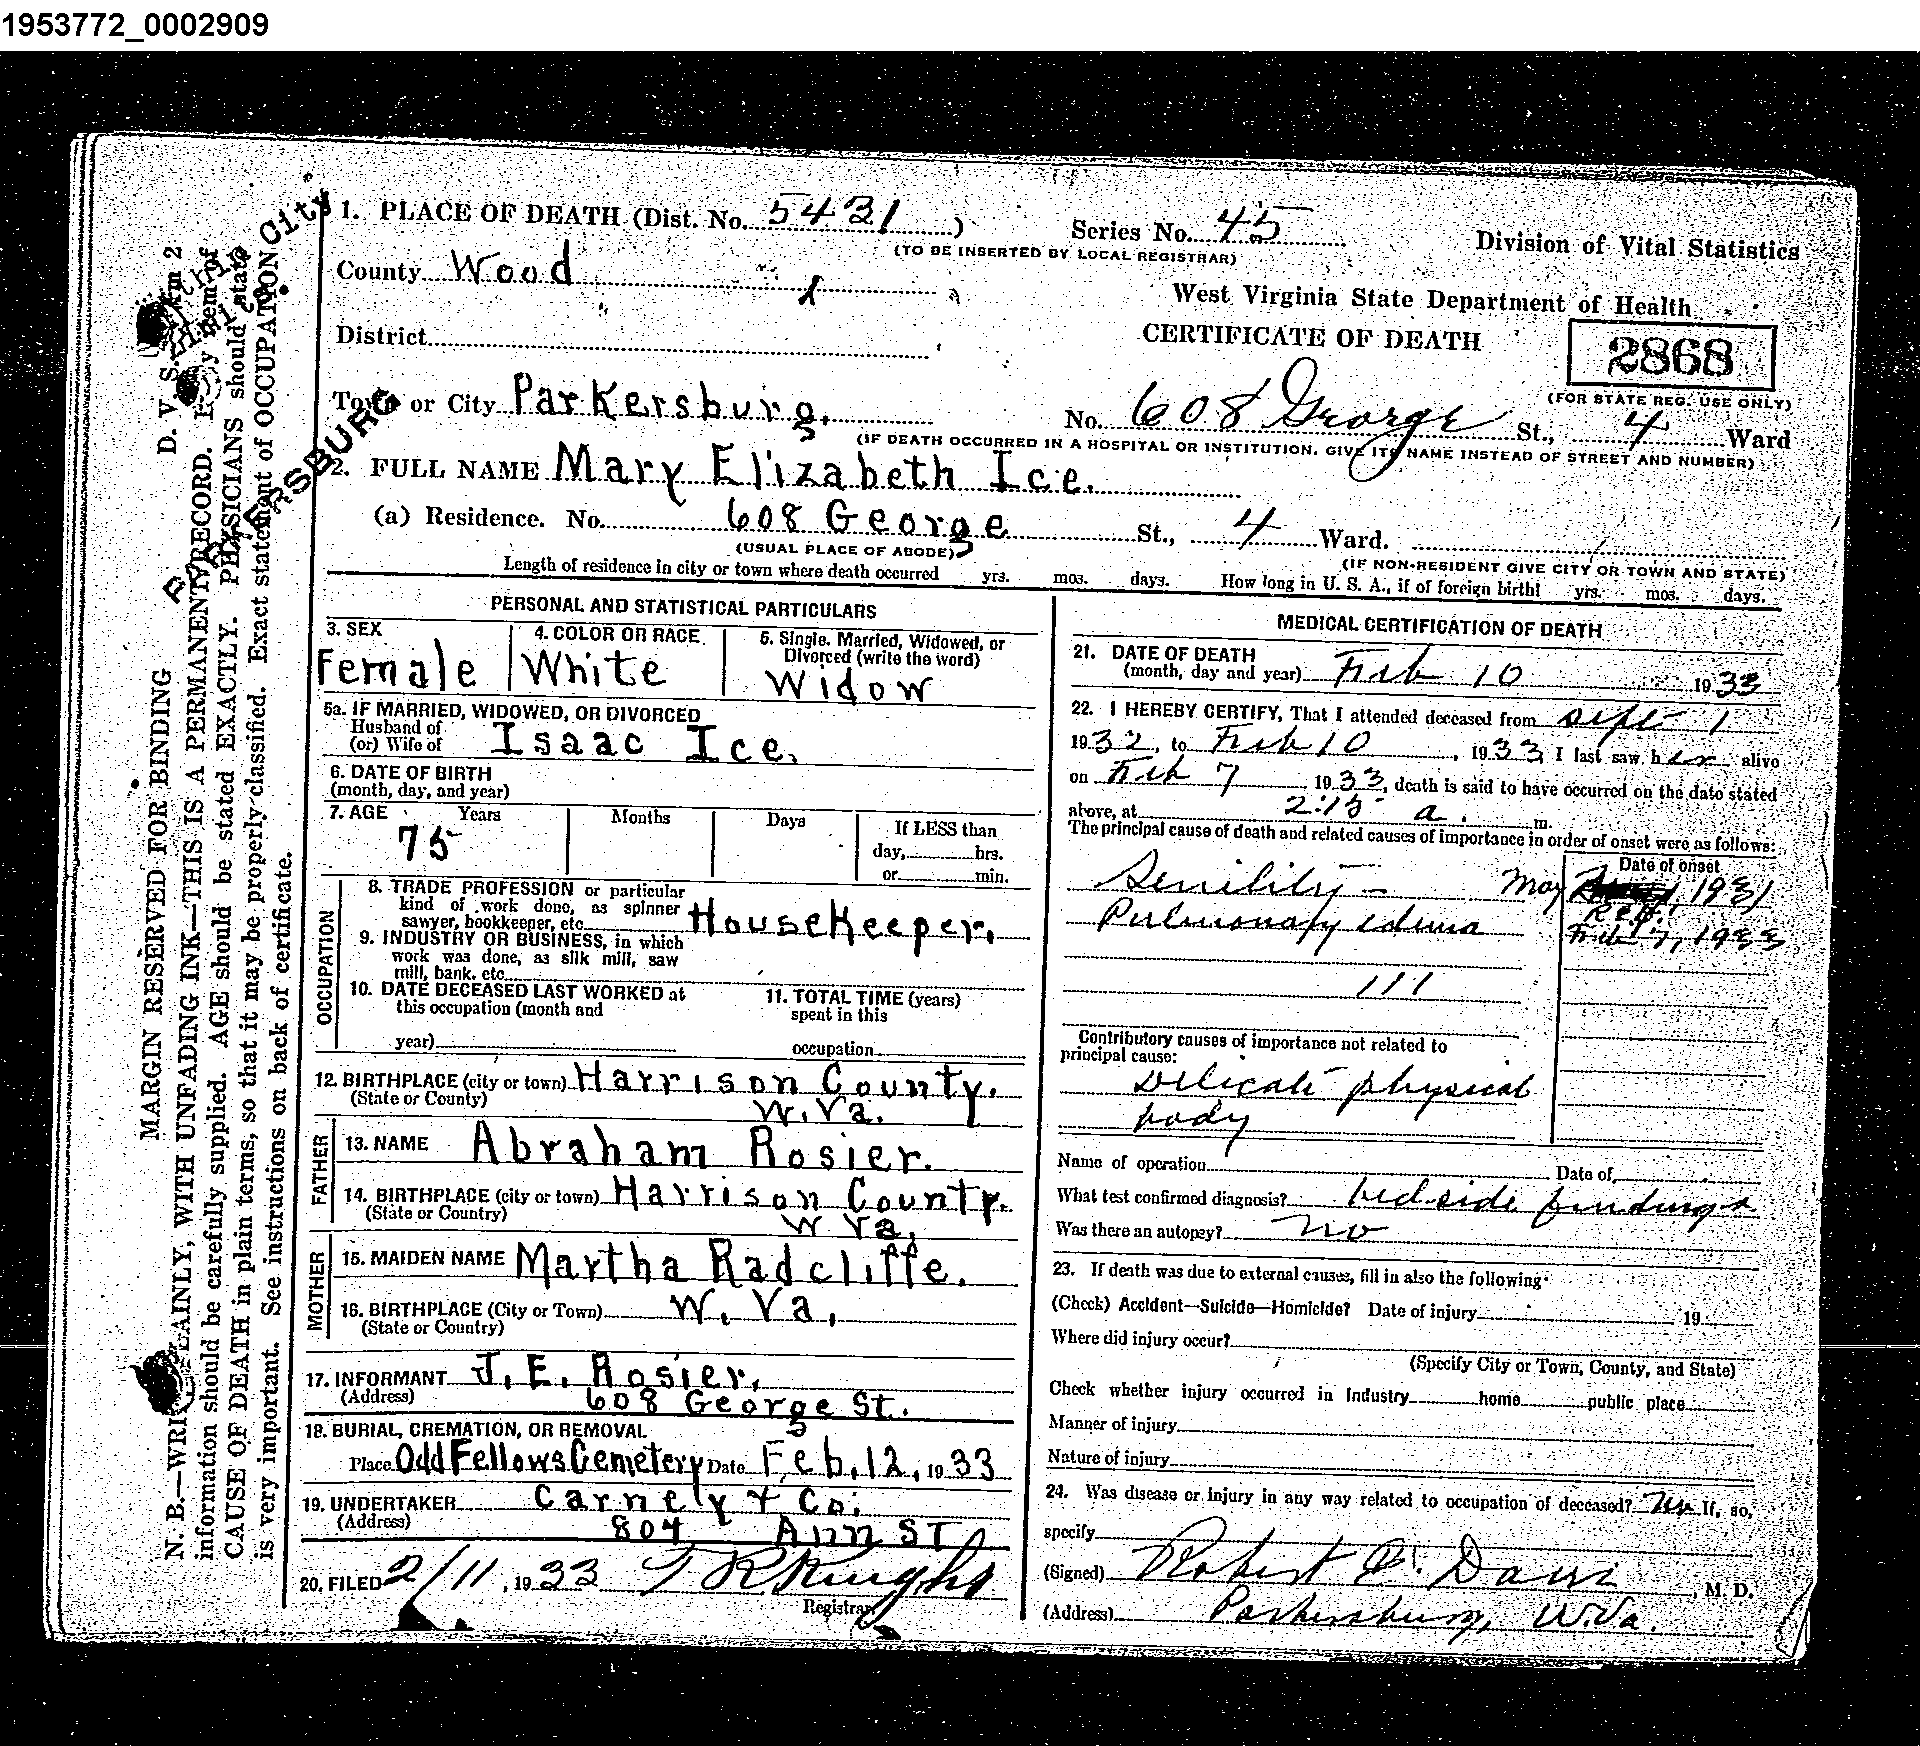 1953772_0002909
1. PLACE OF DEATH (Dist. No. 5431)
Series No. 45
Division of Vital Statistics
(TO BE INSERTED BY LOCAL REGISTRAR)
County Wood
West Virginia State Department of Health
District
CERTIFICATE OF DEATH
2868
(FOR STATE REG. USE ONLY)
Town or City Parkersburg.
No. 608 George St., 4 Ward
(IF DEATH OCCURRED IN A HOSPITAL OR INSTITUTION, GIVE ITS NAME INSTEAD OF STREET AND NUMBER)
2. FULL NAME Mary Elizabeth Ice.
(a) Residence. No. 608 George St., 4 Ward.
(USUAL PLACE OF ABODE)
(IF NON-RESIDENT GIVE CITY OR TOWN AND STATE)
Length of residence in city or town where death occurred yrs. mos. days. How long in U. S. A., if of foreign birth? yrs. mos. days.
PERSONAL AND STATISTICAL PARTICULARS
3. SEX
Female
4. COLOR OR RACE
White
5. Single, Married, Widowed, or
Divorced (write the word)
Widow
5a. IF MARRIED, WIDOWED, OR DIVORCED
Husband of
(or) Wife of Isaac Ice.
6. DATE OF BIRTH
(month, day, and year)
7. AGE Years Months Days If LESS than
75
day, hrs.
or min.
OCCUPATION
8. TRADE PROFESSION or particular
kind of work done, as spinner
sawyer, bookkeeper, etc. HouseKeeper.
9. INDUSTRY OR BUSINESS, in which
work was done, as silk mill, saw
mill, bank. etc
10. DATE DECEASED LAST WORKED at
this occupation (month and
year)
11. TOTAL TIME (years)
spent in this
occupation
12. BIRTHPLACE (city or town) Harrison County.
(State or County) W. Va.
FATHER
13. NAME Abraham Rosier.
14. BIRTHPLACE (city or town) Harrison County.
(State or Country) W Va,
MOTHER
15. MAIDEN NAME Martha Radcliffe.
16. BIRTHPLACE (City or Town) W. Va.
(State or Country)
17. INFORMANT J. E. Rosier.
(Address) 608 George St.
18. BURIAL, CREMATION, OR REMOVAL
Place Odd Fellows Cemetery Date Feb. 12, 1933
19. UNDERTAKER Carnely + Co.
(Address) 804 Ann ST
20. FILED 2/11, 1933 T R Knight
Registrar
MEDICAL CERTIFICATION OF DEATH
21. DATE OF DEATH
(month, day and year) Feb 10 1933
22. I HEREBY CERTIFY, That I attended deceased from Sept 1
1932, to Feb 10, 1933, I last saw her alive
on Feb 7 1933, death is said to have occurred on the date stated
above, at 2:15 a. m.
The principal cause of death and related causes of importance in order of onset were as follows:
Date of onset
Senility - May 1931
Pulmonary edema Feb 7, 1933
111
Contributory causes of importance not related to
principal cause:
Delicate physical
body
Name of operation Date of
What test confirmed diagnosis? bedside findings
Was there an autopsy? no
23. If death was due to external causes, fill in also the following:
(Check) Accident—Suicide—Homicide? Date of injury 19
Where did injury occur?
(Specify City or Town, County, and State)
Check whether injury occurred in Industry home public place
Manner of injury
Nature of injury
24. Was disease or injury in any way related to occupation of deceased? no If, so,
specify
(Signed) Robert E. Davis, M. D.
(Address) Parkersburg, W.Va.
D. V. S.
MARGIN RESERVED FOR BINDING
N. B.—WRITE PLAINLY, WITH UNFADING INK—THIS IS A PERMANENT RECORD. Every item of
information should be carefully supplied. AGE should be stated EXACTLY. PHYSICIANS should state
CAUSE OF DEATH in plain terms, so that it may be properly classified. Exact statement of OCCUPATION
is very important. See instructions on back of certificate.
PARKERSBURG
City